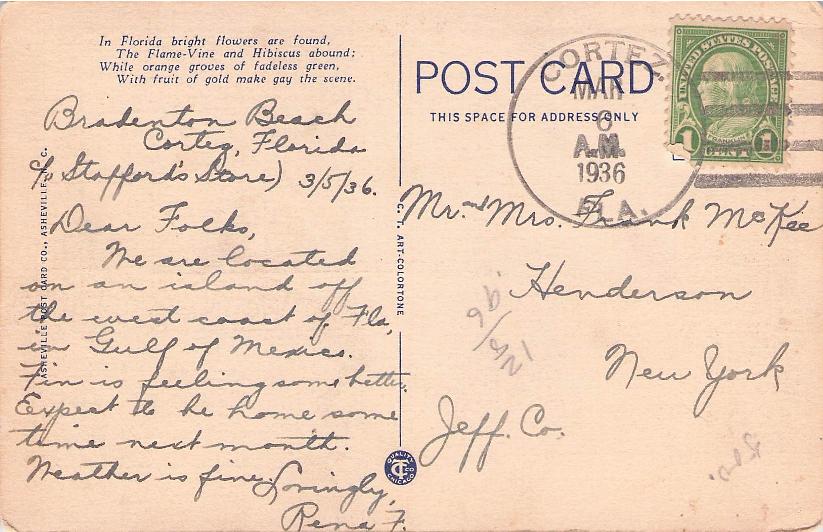 In Florida bright flowers are found,
The Flame-Vine and Hibiscus abound;
While orange groves of fadeless green,
With fruit of gold make gay the scene.
Bradenton Beach
Cortez, Florida
(% Stafford's Store) 3/5/36.
Dear Folks,
We are located
on an island off
the west coast of Fla,
in Gulf of Mexico.
Fin is feeling some better.
Expect to be home some
time next month.
Weather is fine. Lovingly,
Rena F.
ASHEVILLE POST CARD CO., ASHEVILLE, N. C.
C. T. ART-COLORTONE
QUALITY
CT CO
CHICAGO
POST CARD
THIS SPACE FOR ADDRESS ONLY
CORTEZ,
MAR
6
A.M.
1936
FLA.
UNITED STATES POSTAGE
FRANKLIN
1 CENT 1
Mr. and Mrs. Frank McKee
Henderson
New York
Jeff. Co.